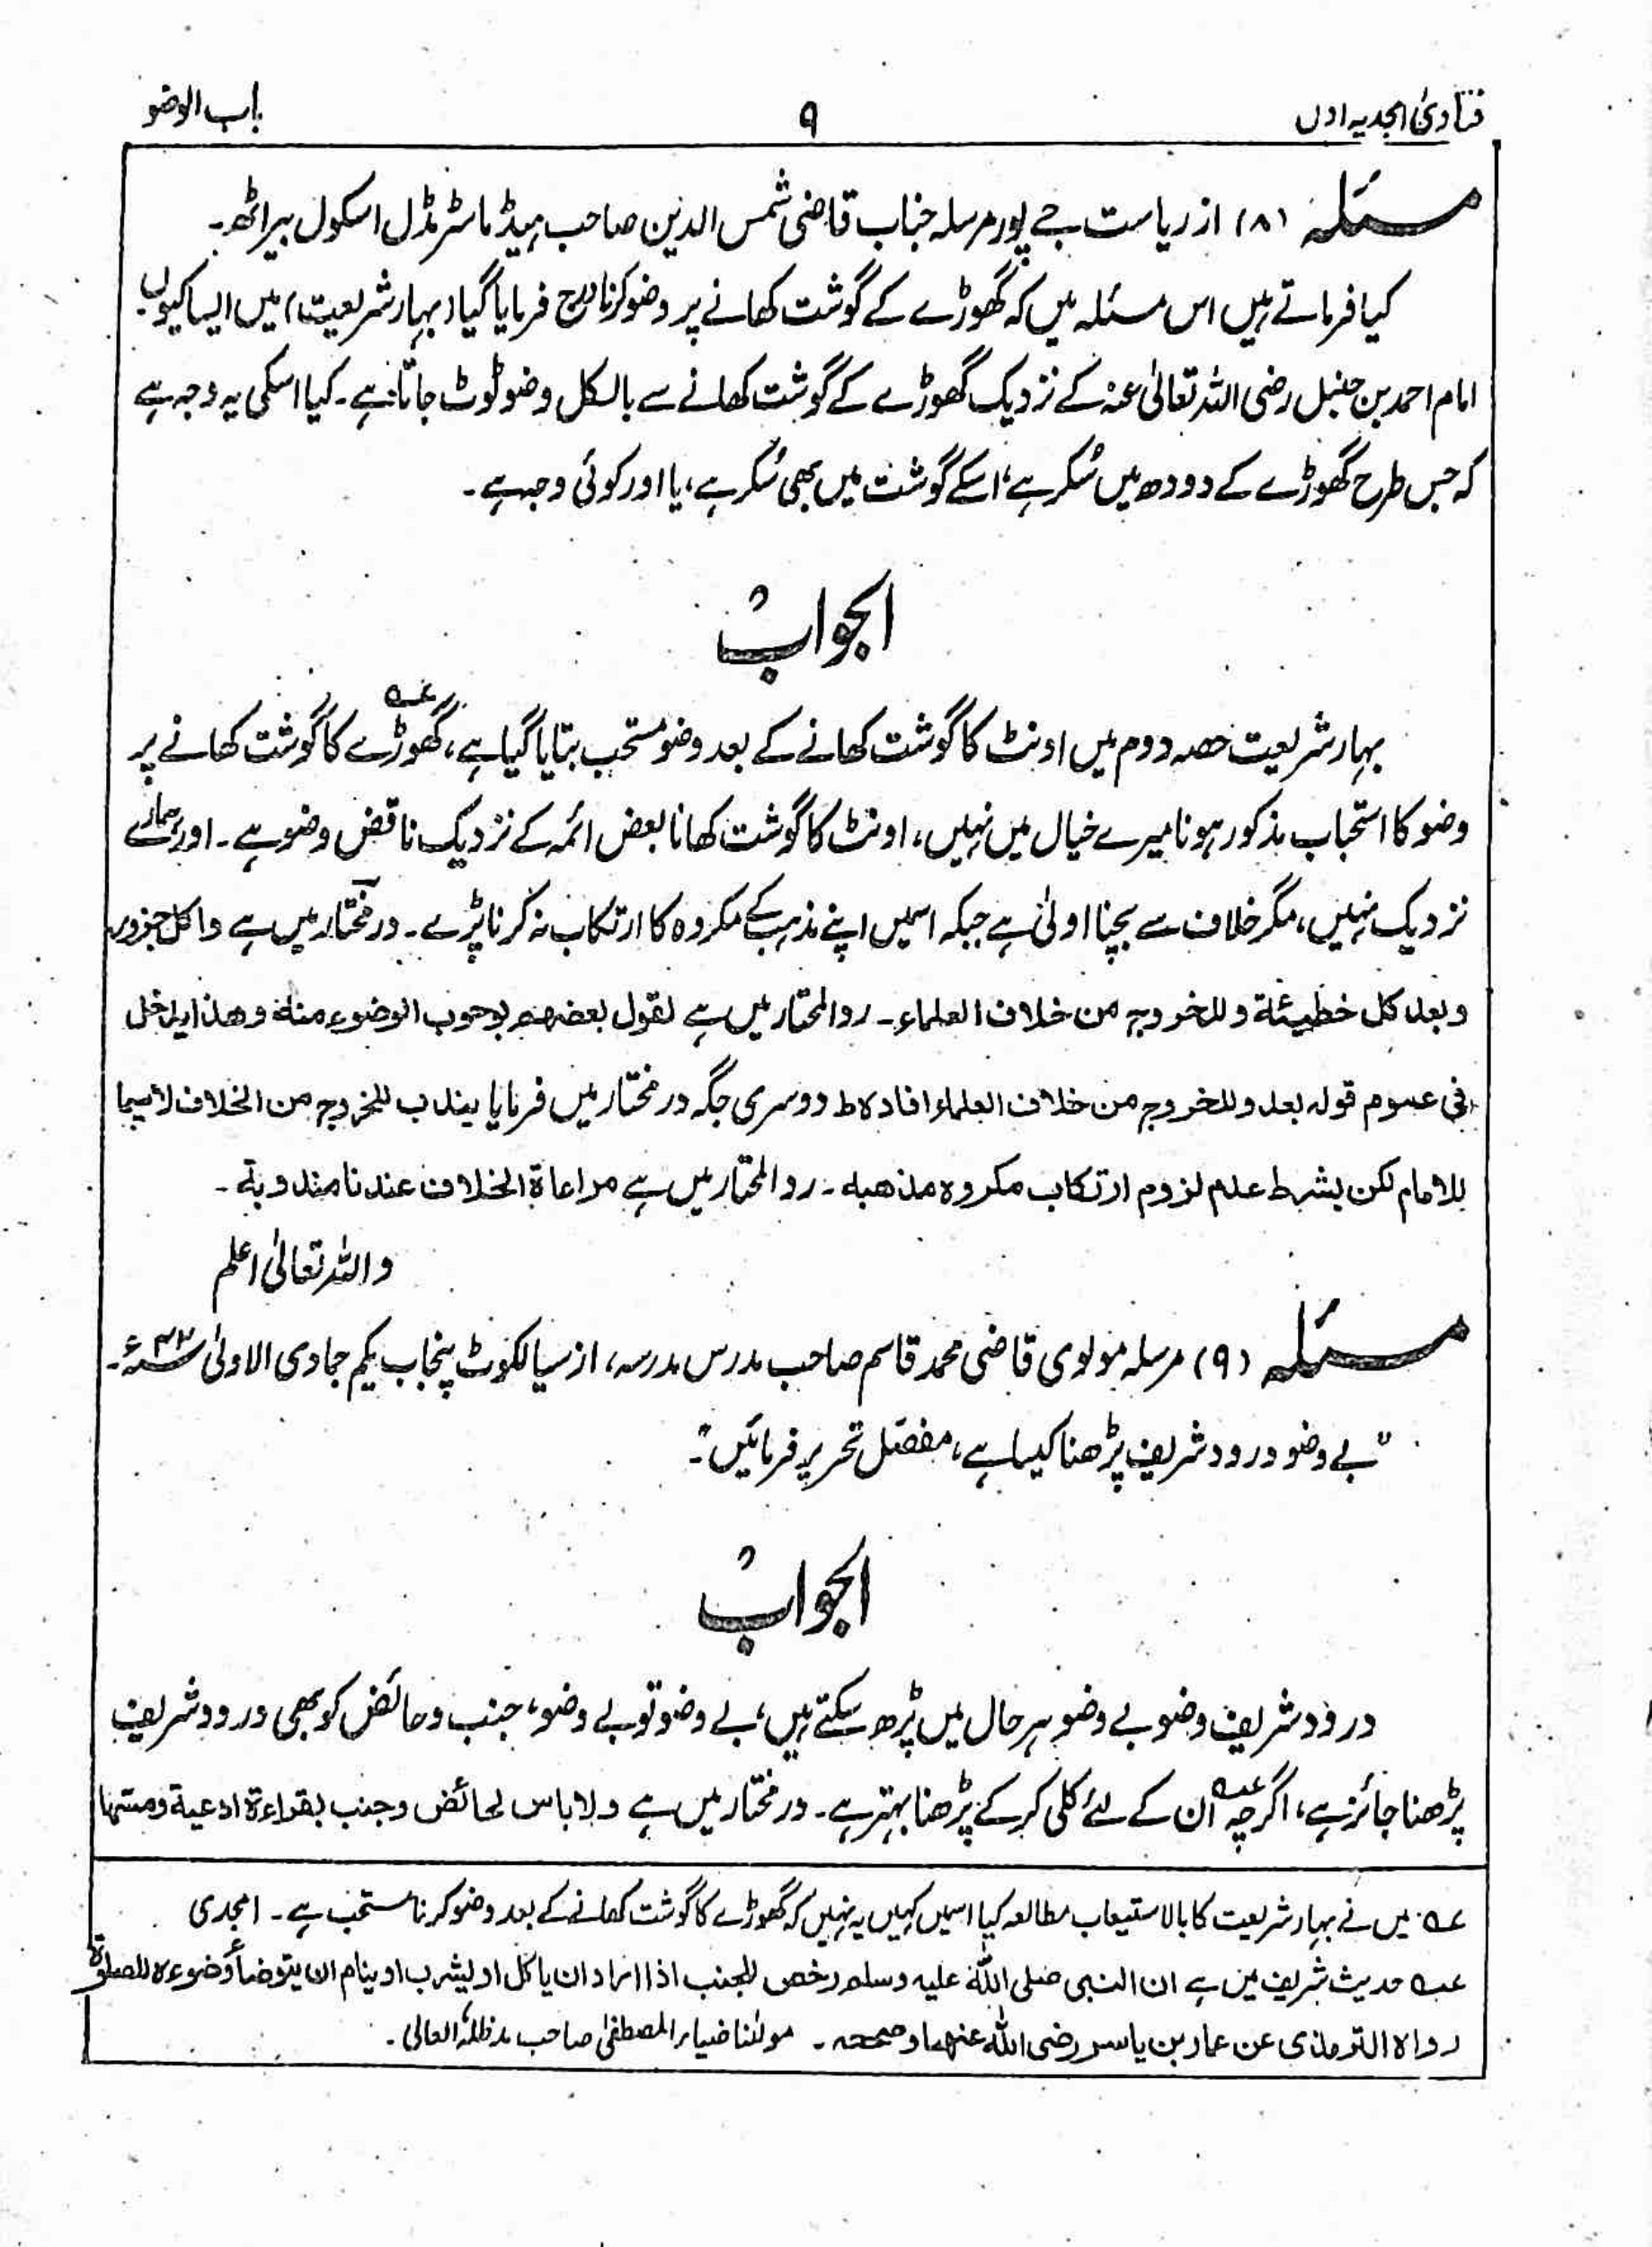 فتاویٰ امجدیہ اول
۹
باب الوضو
مسئلہ (۸) از ریاست جے پور مرسلہ جناب قاضی شمس الدین صاحب ہیڈ ماسٹر مڈل اسکول بیراٹھ۔
کیا فرماتے ہیں اس مسئلہ میں کہ گھوڑے کے گوشت کھانے پر وضو کرنا درج فرمایا گیا (بہار شریعت) میں ایسا کیوں
امام احمد بن حنبل رضی اللہ تعالیٰ عنہ کے نزدیک گھوڑے کے گوشت کھانے سے بالکل وضو ٹوٹ جاتا ہے۔ کیا اسکی یہ وجہ ہے
کہ جس طرح گھوڑے کے دودھ میں سُکر ہے، اسکے گوشت میں بھی سُکر ہے، یا اور کوئی وجہ ہے۔
الجوابُ
بہار شریعت حصہ دوم میں اونٹ کا گوشت کھانے کے بعد وضو مستحب بتایا گیا ہے، گھوڑے عہ کا گوشت کھانے پر
وضو کا استحباب مذکور ہونا میرے خیال میں نہیں، اونٹ کا گوشت کھانا بعض ائمہ کے نزدیک ناقض وضو ہے۔ اور ہمارے
نزدیک نہیں، مگر خلاف سے بچنا اولیٰ ہے جبکہ اسمیں اپنے مذہب کے مکروہ کا ارتکاب نہ کرنا پڑے۔ درمختار میں ہے و اکل جزور
و بعد کل خطیئة و للخروج من خلاف العلماء۔ ردالمحتار میں ہے لقول بعضهم بوجوب الوضوء منه و هذا یدخل
فی عموم قوله بعد و للخروج من خلاف العلماء افاده ط دوسری جگہ درمختار میں فرمایا یندب للخروج من الخلاف لاسیما
للامام لکن بشرط عدم لزوم ارتکاب مکروه مذهبه۔ ردالمحتار میں ہے مراعاة الخلاف عندنا مندوبة۔
واللہ تعالیٰ اعلم
مسئلہ (۹) مرسلہ مولوی قاضی محمد قاسم صاحب مدرس مدرسہ، از سیالکوٹ پنجاب یکم جمادی الاولیٰ ۴۳ھ۔
"بے وضو درود شریف پڑھنا کیسا ہے، مفصّل تحریر فرمائیں"۔
الجوابُ
درود شریف وضو بے وضو ہر حال میں پڑھ سکتے ہیں، بے وضو تو بے وضو، جنب و حائض کو بھی درود شریف
پڑھنا جائز ہے، اگرچہ عہ ان کے لئے کلی کرکے پڑھنا بہتر ہے۔ درمختار میں ہے ولاباس لحائض و جنب بقراءة ادعیة ومسها
عہ میں نے بہار شریعت کا بالاستیعاب مطالعہ کیا اسمیں کہیں یہ نہیں کہ گھوڑے کا گوشت کھانے کے بعد وضو کرنا مستحب ہے۔ امجدی
عہ حدیث شریف میں ہے ان النبی صلی اللّٰہ علیہ وسلم رخص للجنب اذا اراد ان یاکل او یشرب او ینام ان یتوضأ وضوءہ للصلوٰة
رواہ الترمذی عن عمار بن یاسر رضی اللّٰہ عنهما وصححہ۔ مولٰنا ضیاء المصطفیٰ صاحب مدظلہٗ العالی۔